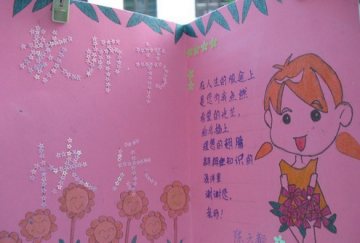 教师节
快乐
在人生的旅途上
是您为我点燃
希望的光芒,
给我插上
理想的翅膀
翱翔在知识的
海洋里
谢谢您,
老师!